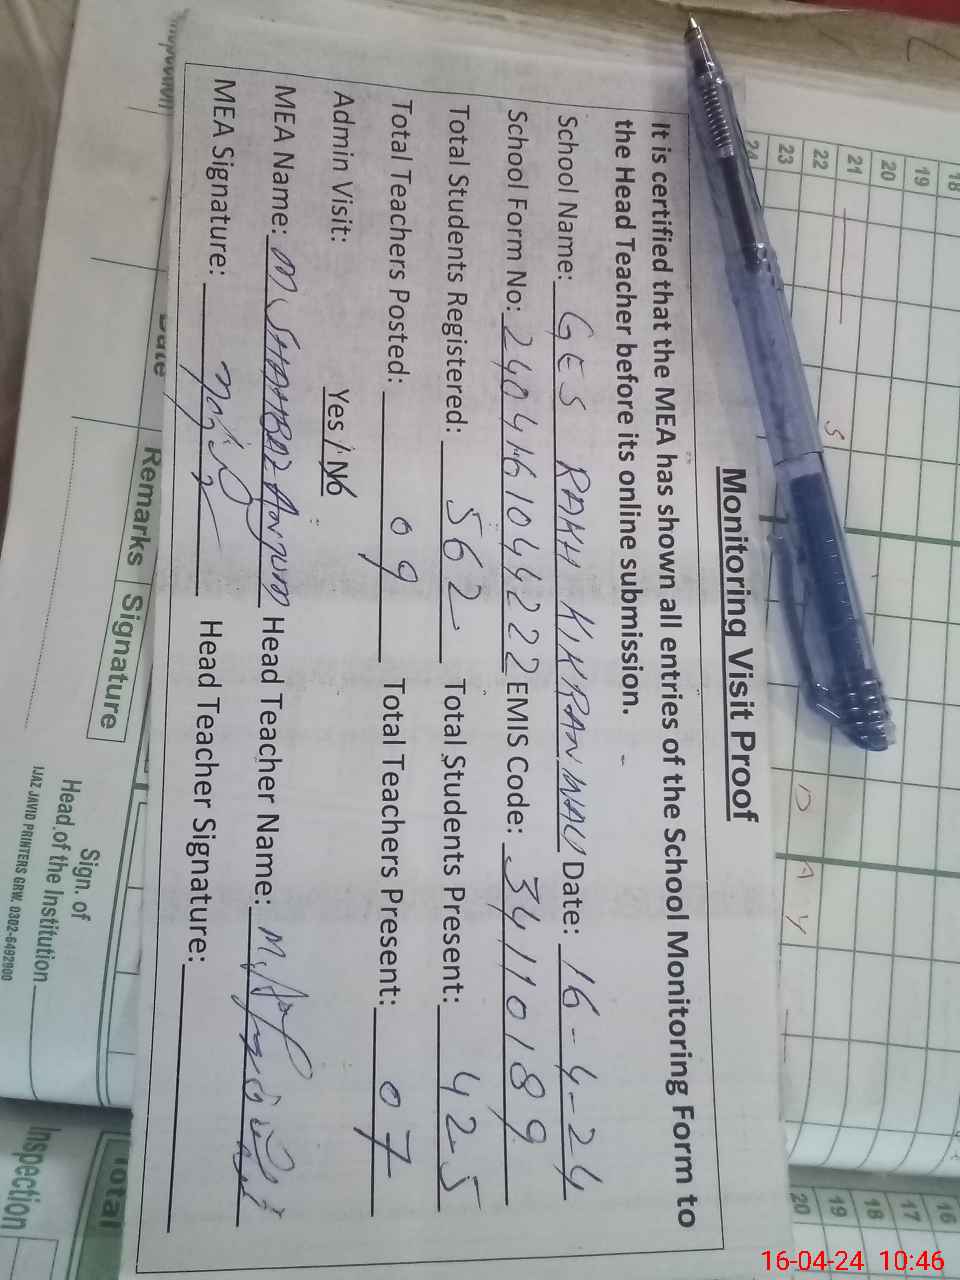 Monitoring Visit Proof
It is certified that the MEA has shown all entries of the School Monitoring Form to
the Head Teacher before its online submission.
School Name: GES RAKH KIKRAN WALI Date: 16-4-24
School Form No: EMIS Code: 34110189
Total Students Registered: 562 Total Students Present: 425
Total Teachers Posted: 09 Total Teachers Present: 07
Admin Visit: Yes / No
MEA Name: M. SHAHBAZ Head Teacher Name:
MEA Signature: Head Teacher Signature:
Date Remarks Signature
Sign. of
Head of the Institution
IJAZ JAVID PRINTERS GRW. 0302-6492900
Total
Inspection
18
19
20
21
22
23
24
S D A Y
16
17
18
19
20
16-04-24 10:46